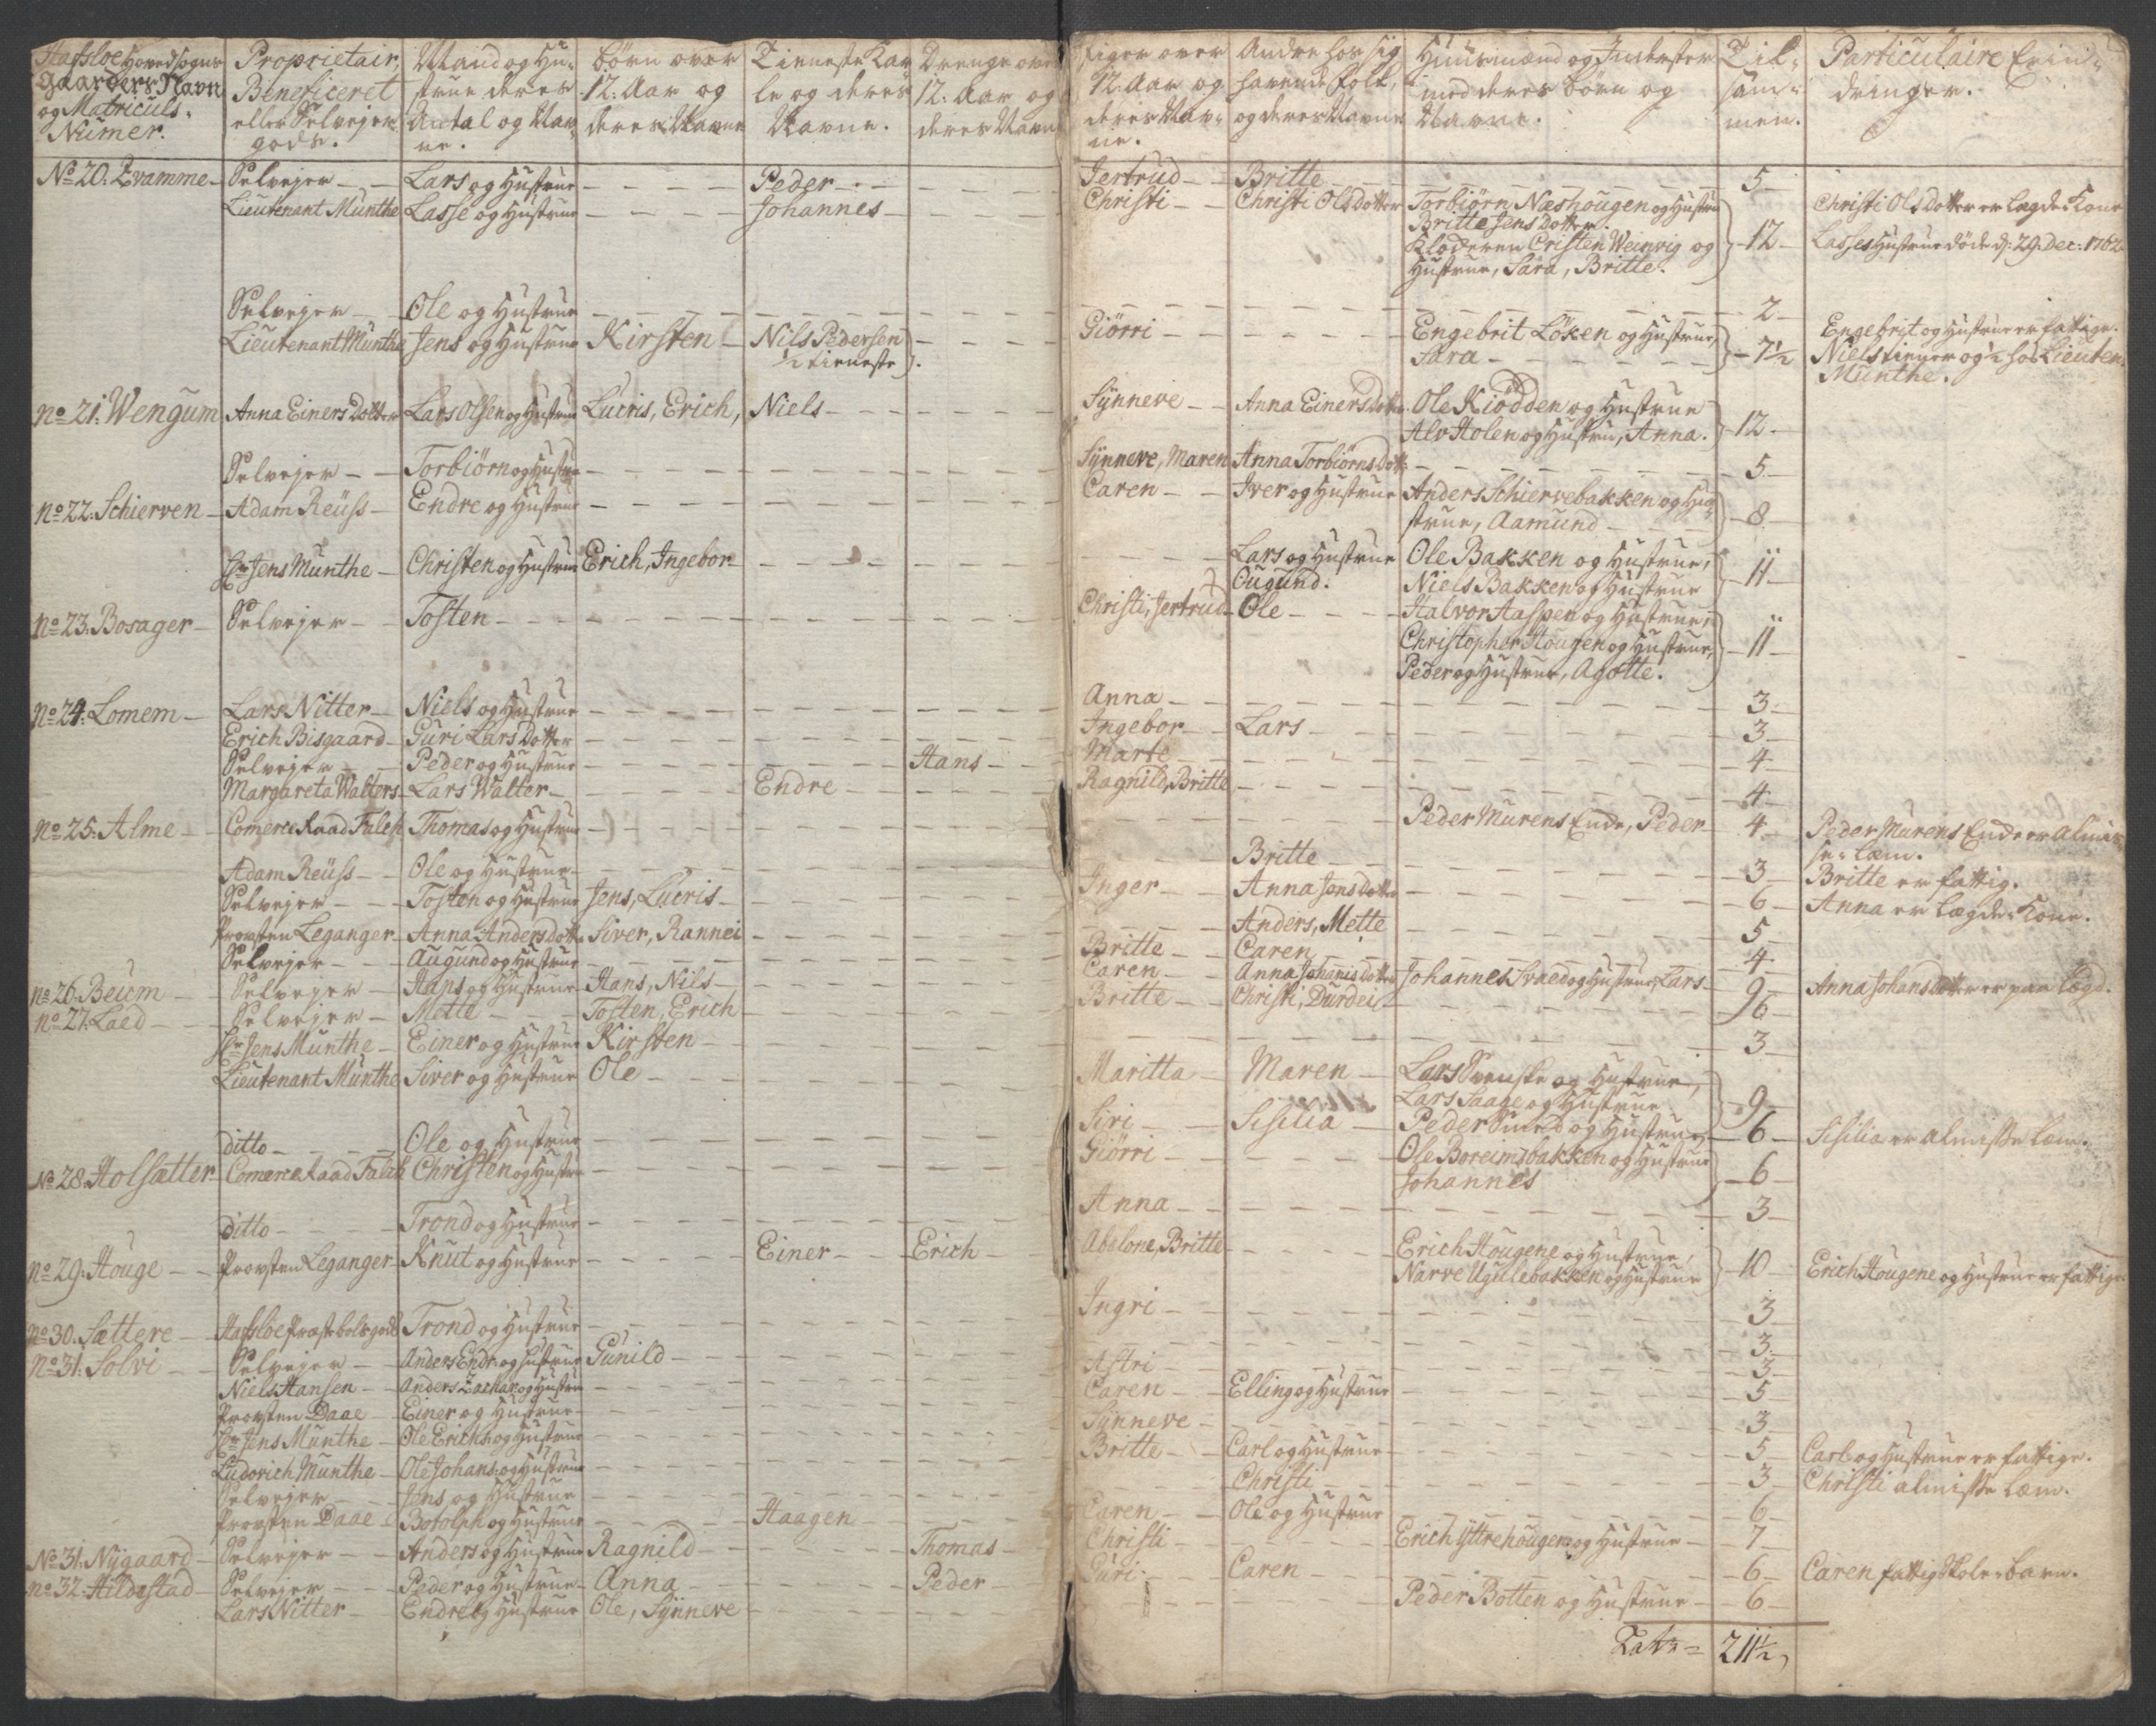 Hafsloe Hovedsogns Gaarders Navn og Matriculs Numer.
Proprietair, Beneficeret eller Selvejer gods.
Mand og Hustrue deres Antal og Navne.
børn over 12. Aar og deres Navne
Tieneste Karle og deres Navne.
Drenge over 12. Aar og deres Navne
Piger over 12. Aar og deres Navne.
Andre hos sig havende Folk, og deres Navne
Huusmænd og Inderster med deres børn og Navne.
Tilsammen.
Particulaire Erindringer.
No 20. Tvamme - Selvejer - Lars og Hustrue - Peder - Jertrud - Britte - 5
Lieutenant Munthe Lasse og Hustrue - Johannes - Christi - Christi Olsdotter Torbiørn Næshougen og Hustru Christi Olsdotter er Lægde-Kone
Britte Jensdotter.
Kloderen Cristen Weinvig og - 12 - Lasses Hustrue døde d: 29. Dec: 1762.
Hustrue, Sara, Britte.
Selvejer - Ole og Hustrue - 2
Lieutenant Munthe Jens og Hustrue Kirsten - Nils Pedersen Giörri - Engebrit Löken og Hustrue, Engebrit og Hustrue er fattige.
1/2 tieneste. Sara - 7 1/2 Niels tiener og 1/2 hos Lieuten. Munthe.
No 21. Wengum Anna Einersdotter Lars Olsen og Hustrue Lucris, Erich, Niels - Synneve - Anna Einersdotter Ole Kiödden og Hustrue
Alv Holen og Hustru, Anna. 12
Selvejer - Torbiörn og Hustrue - Synneve, Maren Anna Torbiörnsdott. - 5
No 22. Schierven - Adam Reüss - Endre og Hustrue - Caren - Iver og Hustrue Anders Schiervebakken og Hustrue, Aamund - 8
Hr. Jens Munthe - Christen og Hustrue Erich, Ingebor - Lars og Hustrue Ougund. Ole Bakken og Hustrue, Niels Bakken og Hustrue - 11
No 23. Bosager - Selvejer - Tosten - Christi, Jertrud - Ole - Halvor Haspen og Hustrue,
Christopher Hougen og Hustrue, - 11
Peder og Hustrue, Agotte.
No 24. Lomem - Lars Nitter - Niels og Hustrue - Anna - 3
Erich Bisgaard - Guri Larsdotter - Ingebor - Lars - 3
Selvejer - Peder og Hustrue - Hans - Marte - 4
Margareta Walters - Lars Walter - Endre - Ragnild, Britte - 4
No 25. Alme - Comerce Raad Falch Thomas og Hustrue - Peder Murens Ende, Peder - 4 - Peder Murens Ende er almisse-læm.
Adam Reüss - Ole og Hustrue - Britte - 3 - Britte er fattig.
Selvejer - Tosten og Hustrue Jens, Lucris - Inger - Anna Jensdotter - 6 - Anna er Lægde-Kone.
Provsten Leganger - Anna Andersdott. Siver, Rannei - Anders, Mette - 5
Selvejer - Augund og Hustrue - Britte - Caren - 4
No 26. Beüm - Selvejer - Hans og Hustrue - Hans, Nils - Caren - Anna Johannisdotter Johannes Svaed og Hustrue, Lars - 9 - Anna Johansdotter er paa Lægd.
No 27. Laed - Selvejer - Mette - Tosten, Erich - Britte - Christi, Durdei - 6
Hr. Jens Munthe - Einer og Hustrue Kirsten - 3
Lieutenant Munthe Siver og Hustrue Ole - Maritta - Maren - Lars Svenske og Hustrue, Lars Saage og Hustrue - 9
ditto - Ole og Hustrue - Siri - Sisilia - Peder Smed og Hustrue, - 6 - Sisilia er almisse læm.
No 28. Holsætter - Comerce Raad Falch Christen og Hustrue - Giörri - Ole Boreimsbakken og Hustrue Johannes - 6
ditto - Trond og Hustrue - Anna - 3
No 29. Houge - Provsten Leganger - Knut og Hustrue - Einer - Erich - Abelone, Britte - Erich Hougene og Hustrue, Narve Ugulebakken og Hustrue 10 - Erich Hougene og Hustrue er fattige
No 30. Sættere - Hafsloe Præstebolsgods Trond og Hustrue - Ingri - 3
No 31. Solvi - Selvejer - Anders Endr. og Hustrue Gunild - 3
Niels Hansen - Anders Zachar. og Hustru - Astri - 3
Provsten Daae - Einer og Hustrue - Caren - Elling og Hustrue - 5
Hr. Jens Munthe - Ole Erichs. og Hustrue - Synneve - 3
Ludovich Munthe - Ole Johans. og Hustrue - Britte - Carl og Hustrue - 5 - Carl og Hustrue er fattige.
Selvejer - Jens og Hustrue - Christi - 3 - Christi almisse læm.
Provsten Daae - Botolph og Hustrue - Haagen - Caren - Ole og Hustrue - 6
No 31. Nygaard - Selvejer - Anders og Hustrue Ragnild - Thomas - Christi - Erich Yttrehougen og Hustrue - 7
No 32. Hildestad - Selvejer - Peder og Hustrue - Anna - Peder - Guri - Caren - 6 - Caren fattig Skole-barn.
Lars Nitter - Endre og Hustrue Ole, Synneve - Peder Botten og Hustrue - 6
Latus = 211 1/2